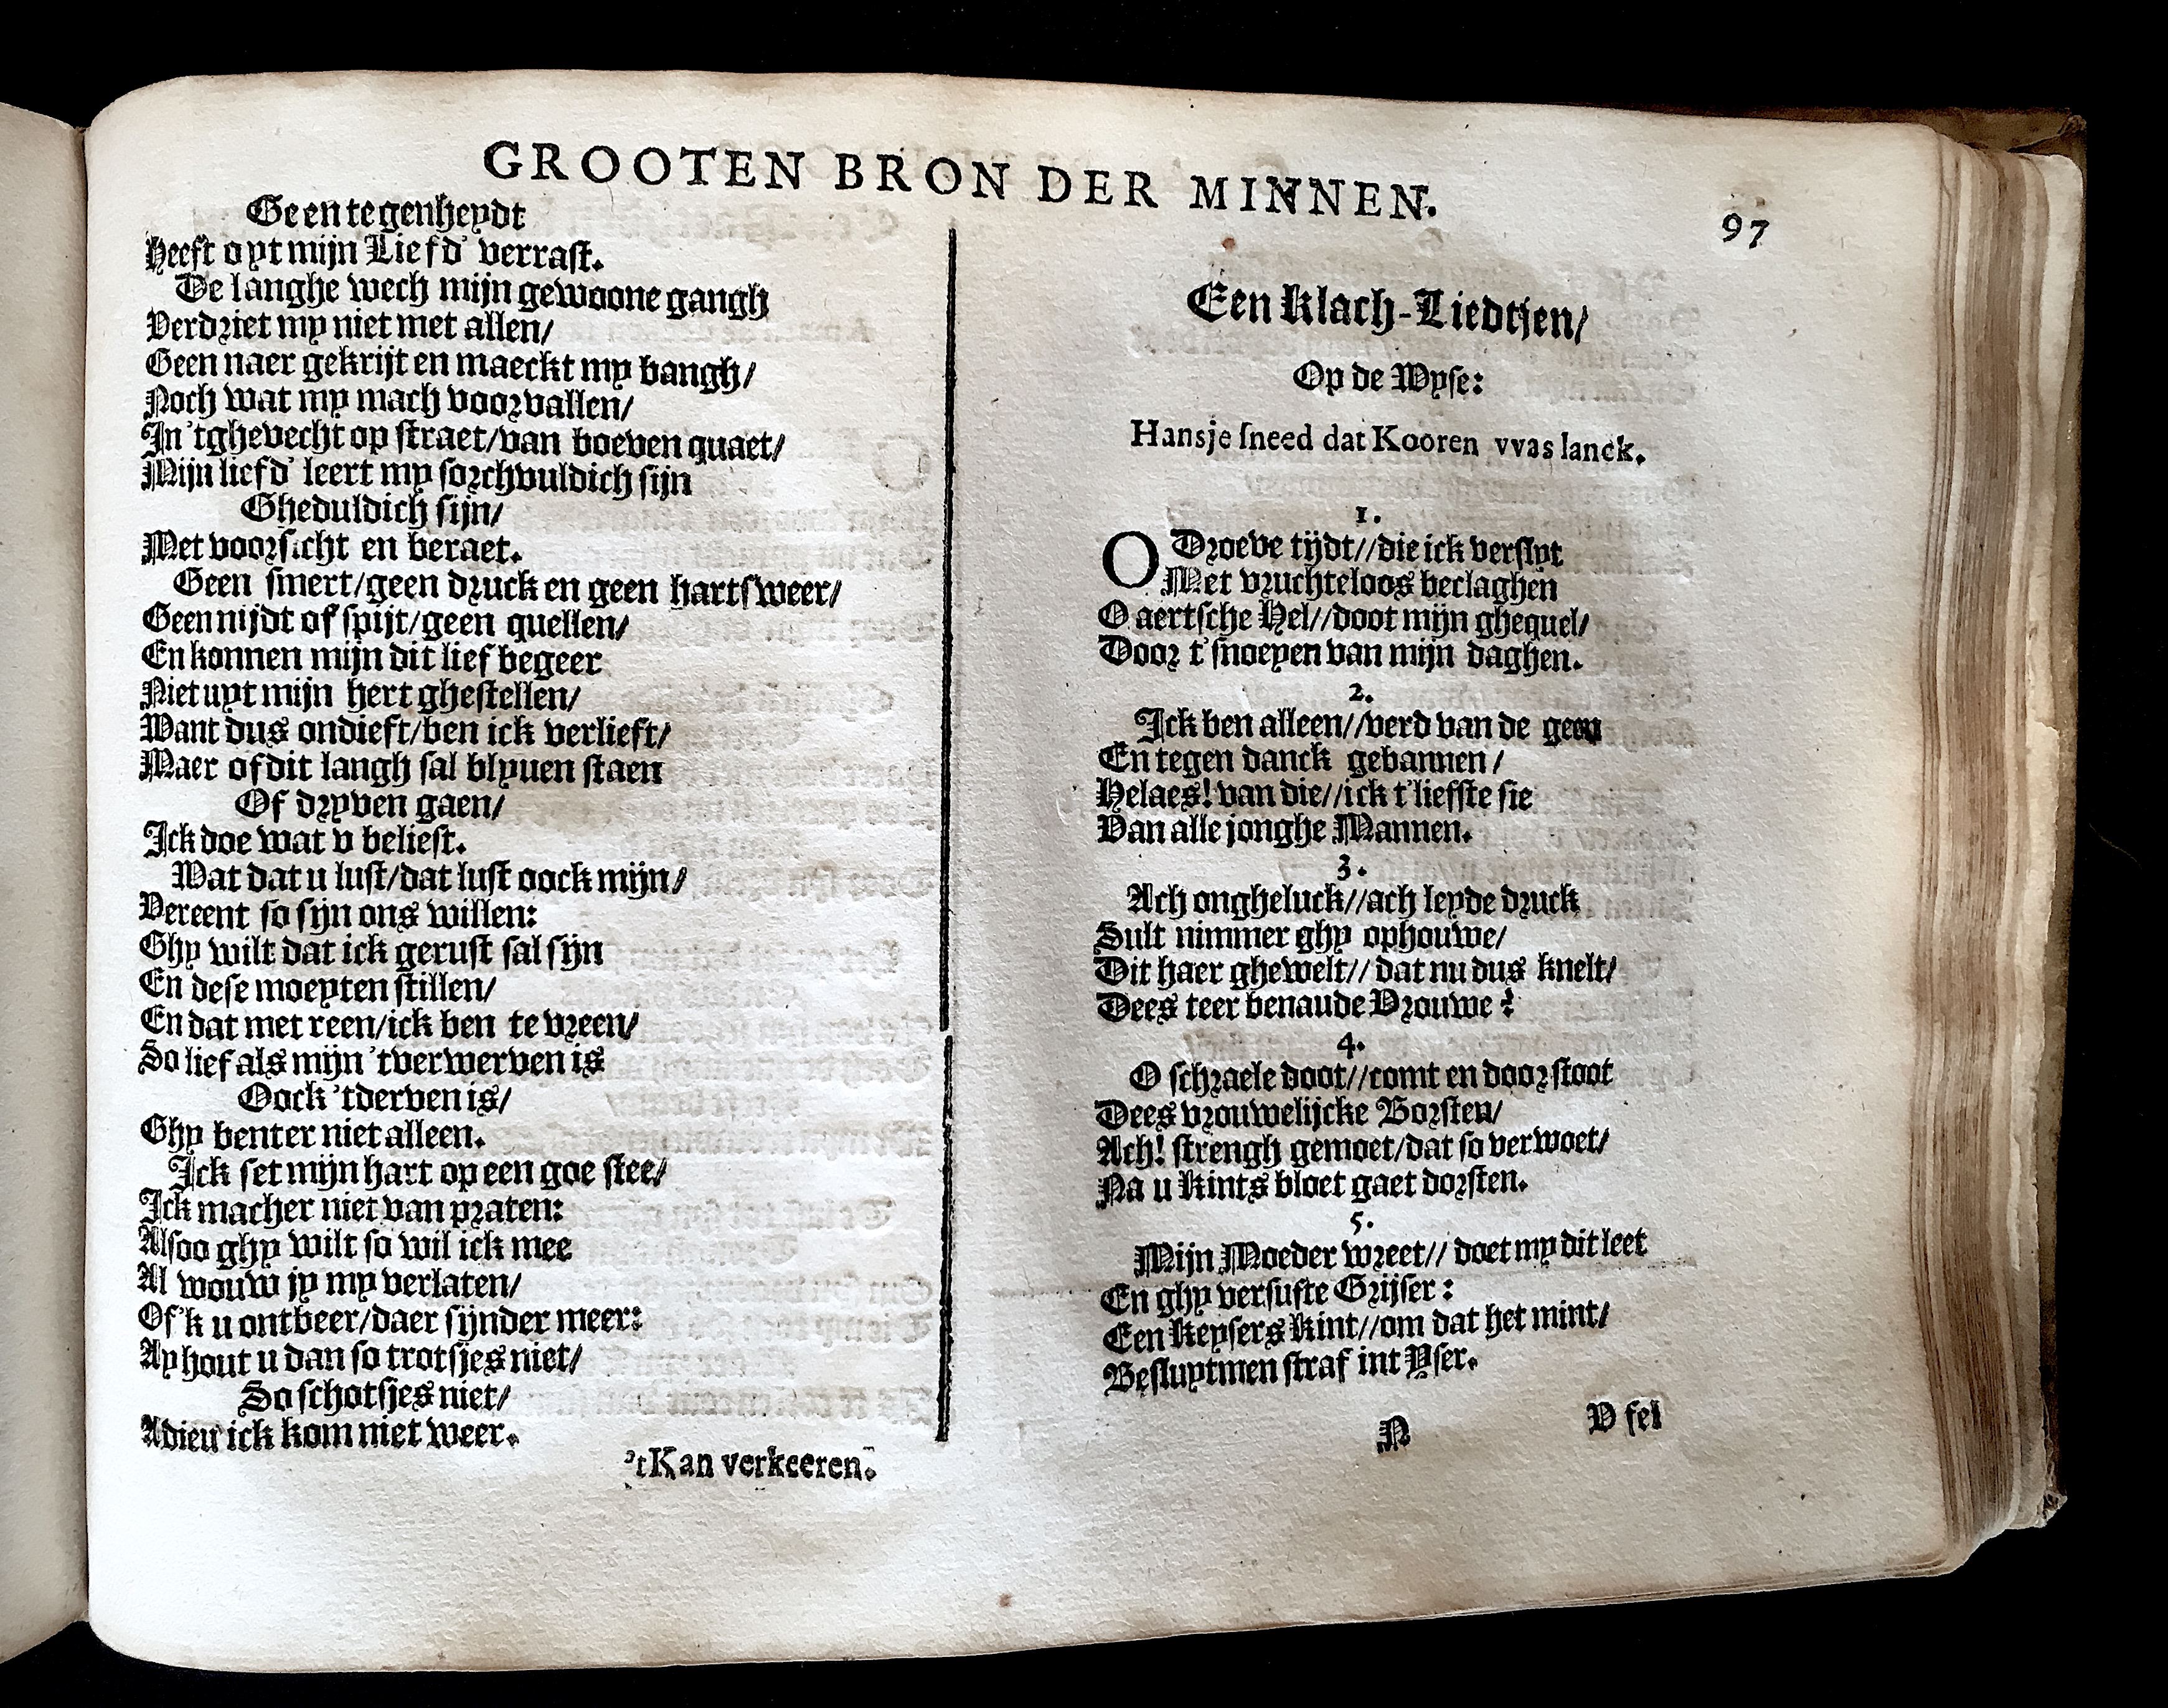 GROOTEN BRON DER MINNEN.
97
Geen tegenheydt
Heeft oyt mijn Liefd' verrast.
De langhe wech mijn gewoone gangh
Verdriet my niet met allen/
Geen naer gekrijt en maeckt my bangh/
Noch wat my mach voorvallen/
In 'tghevecht op straet/van boeven quaet/
Mijn liefd' leert my sorchvuldich sijn
Gheduldich sijn/
Met voorsicht en beraet.
Geen smert/geen druck en geen hartsweer/
Geen nijdt of spijt/geen quellen/
En konnen mijn dit lief begeer
Niet uyt mijn hert ghestellen/
Want dus ondieft/ben ick verlieft/
Maer of dit langh sal blyuen staen
Of dryven gaen/
Ick doe wat v beliest.
Wat dat u lust/dat lust oock mijn/
Vereent so sijn ons willen:
Ghy wilt dat ick gerust sal sijn
En dese moeyten stillen/
En dat met reen/ick ben te vreen/
So lief als mijn 'tverwerven is
Oock 'tderven is/
Ghy benter niet alleen.
Ick set mijn hart op een goe stee/
Ick macher niet van praten:
Alsoo ghy wilt so wil ick mee
Al wouw jy my verlaten/
Of 'k u ontbeer/daer sijnder meer:
Ay hout u dan so trotsjes niet/
So schotsjes niet/
Adieu ick kom niet weer.
'tKan verkeeren.
Een Klach-Liedtjen/
Op de Wyse:
Hansje sneed dat Kooren vvas lanck.
1.
O Droeve tijdt//die ick verslyt
Met vruchteloos beclaghen
O aertsche Hel//doot mijn ghequel/
Door t'snoeyen van mijn daghen.
2.
Ick ben alleen//verd van de geen
En tegen danck gebannen/
Helaes! van die//ick t'liefste sie
Van alle jonghe Mannen.
3.
Ach ongheluck//ach leyde druck
Sult nimmer ghy ophouwe/
Dit haer ghewelt//dat nu dus knelt/
Dees teer benaude Vrouwe?
4.
O schraele doot//comt en doorstoot
Dees vrouwelijcke Borsten/
Ach! strengh gemoet/dat so verwoet/
Na u Kints bloet gaet dorsten.
5.
Mijn Moeder wreet//doet my dit leet
En ghy versufte Grijser:
Een Keysers Kint//om dat het mint/
Besluytmen straf int Yser.
N
V fel